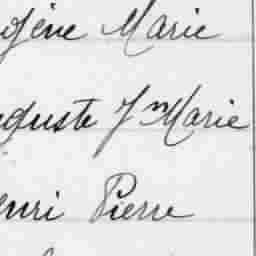 ugène Marie
uguste Jn Marie
enri Pierre